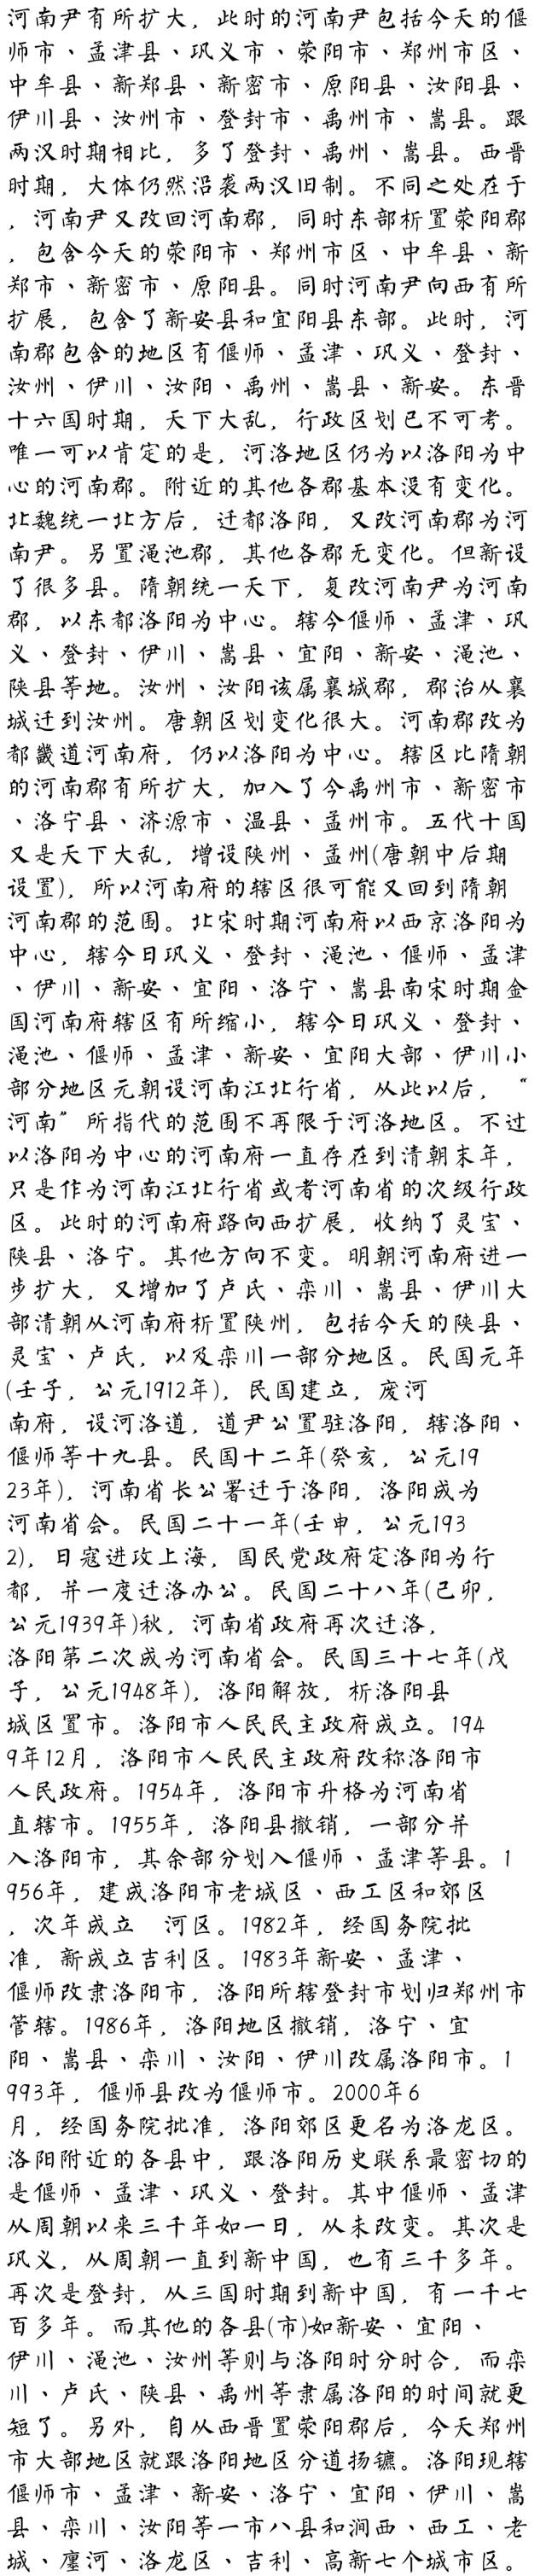 河南尹有所扩大，此时的河南尹包括今天的偃
师市、孟津县、巩义市、荥阳市、郑州市区、
中牟县、新郑县、新密市、原阳县、汝阳县、
伊川县、汝州市、登封市、禹州市、嵩县。跟
两汉时期相比，多了登封、禹州、嵩县。西晋
时期，大体仍然沿袭两汉旧制。不同之处在于
，河南尹又改回河南郡，同时东部析置荥阳郡
，包含今天的荥阳市、郑州市区、中牟县、新
郑市、新密市、原阳县。同时河南尹向西有所
扩展，包含了新安县和宜阳县东部。此时，河
南郡包含的地区有偃师、孟津、巩义、登封、
汝州、伊川、汝阳、禹州、嵩县、新安。东晋
十六国时期，天下大乱，行政区划已不可考。
唯一可以肯定的是，河洛地区仍为以洛阳为中
心的河南郡。附近的其他各郡基本没有变化。
北魏统一北方后，迁都洛阳，又改河南郡为河
南尹。另置渑池郡，其他各郡无变化。但新设
了很多县。隋朝统一天下，复改河南尹为河南
郡，以东都洛阳为中心。辖今偃师、孟津、巩
义、登封、伊川、嵩县、宜阳、新安、渑池、
陕县等地。汝州、汝阳该属襄城郡，郡治从襄
城迁到汝州。唐朝区划变化很大。河南郡改为
都畿道河南府，仍以洛阳为中心。辖区比隋朝
的河南郡有所扩大，加入了今禹州市、新密市
、洛宁县、济源市、温县、孟州市。五代十国
又是天下大乱，增设陕州、孟州(唐朝中后期
设置)，所以河南府的辖区很可能又回到隋朝
河南郡的范围。北宋时期河南府以西京洛阳为
中心，辖今日巩义、登封、渑池、偃师、孟津
、伊川、新安、宜阳、洛宁、嵩县南宋时期金
国河南府辖区有所缩小，辖今日巩义、登封、
渑池、偃师、孟津、新安、宜阳大部、伊川小
部分地区元朝设河南江北行省，从此以后，“
河南”所指代的范围不再限于河洛地区。不过
以洛阳为中心的河南府一直存在到清朝末年，
只是作为河南江北行省或者河南省的次级行政
区。此时的河南府路向西扩展，收纳了灵宝、
陕县、洛宁。其他方向不变。明朝河南府进一
步扩大，又增加了卢氏、栾川、嵩县、伊川大
部清朝从河南府析置陕州，包括今天的陕县、
灵宝、卢氏，以及栾川一部分地区。民国元年
(壬子，公元1912年)，民国建立，废河
南府，设河洛道，道尹公置驻洛阳，辖洛阳、
偃师等十九县。民国十二年(癸亥，公元19
23年)，河南省长公署迁于洛阳，洛阳成为
河南省会。民国二十一年(壬申，公元193
2)，日寇进攻上海，国民党政府定洛阳为行
都，并一度迁洛办公。民国二十八年(己卯，
公元1939年)秋，河南省政府再次迁洛，
洛阳第二次成为河南省会。民国三十七年(戊
子，公元1948年)，洛阳解放，析洛阳县
城区置市。洛阳市人民民主政府成立。194
9年12月，洛阳市人民民主政府改称洛阳市
人民政府。1954年，洛阳市升格为河南省
直辖市。1955年，洛阳县撤销，一部分并
入洛阳市，其余部分划入偃师、孟津等县。1
956年，建成洛阳市老城区、西工区和郊区
，次年成立　河区。1982年，经国务院批
准，新成立吉利区。1983年新安、孟津、
偃师改隶洛阳市，洛阳所辖登封市划归郑州市
管辖。1986年，洛阳地区撤销，洛宁、宜
阳、嵩县、栾川、汝阳、伊川改属洛阳市。1
993年，偃师县改为偃师市。2000年6
月，经国务院批准，洛阳郊区更名为洛龙区。
洛阳附近的各县中，跟洛阳历史联系最密切的
是偃师、孟津、巩义、登封。其中偃师、孟津
从周朝以来三千年如一日，从未改变。其次是
巩义，从周朝一直到新中国，也有三千多年。
再次是登封，从三国时期到新中国，有一千七
百多年。而其他的各县(市)如新安、宜阳、
伊川、渑池、汝州等则与洛阳时分时合，而栾
川、卢氏、陕县、禹州等隶属洛阳的时间就更
短了。另外，自从西晋置荥阳郡后，今天郑州
市大部地区就跟洛阳地区分道扬镳。洛阳现辖
偃师市、孟津、新安、洛宁、宜阳、伊川、嵩
县、栾川、汝阳等一市八县和涧西、西工、老
城、廛河、洛龙区、吉利、高新七个城市区。